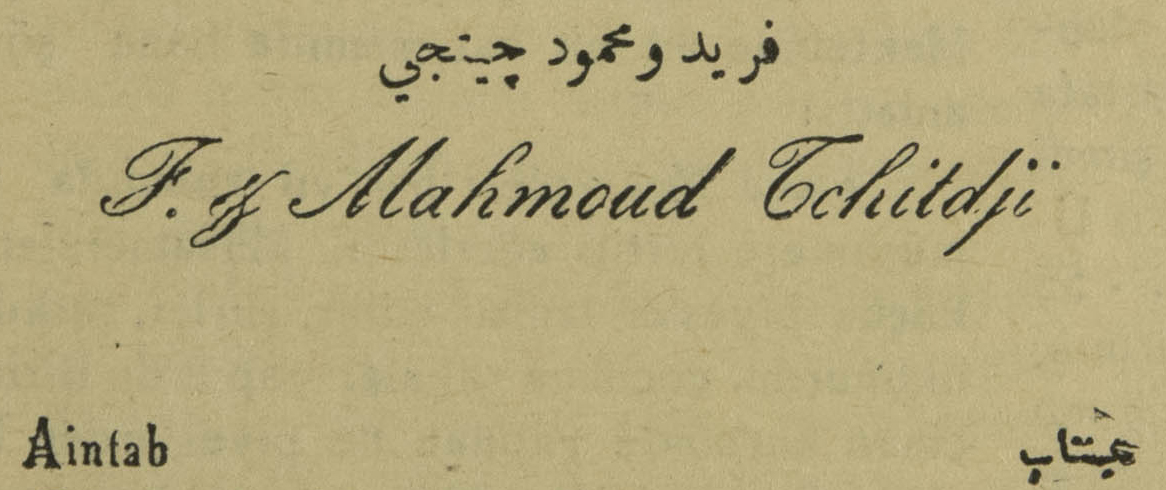 فريد و محمود چيتجي
F. & Mahmoud Tchitdji
Aintab
عينتاب